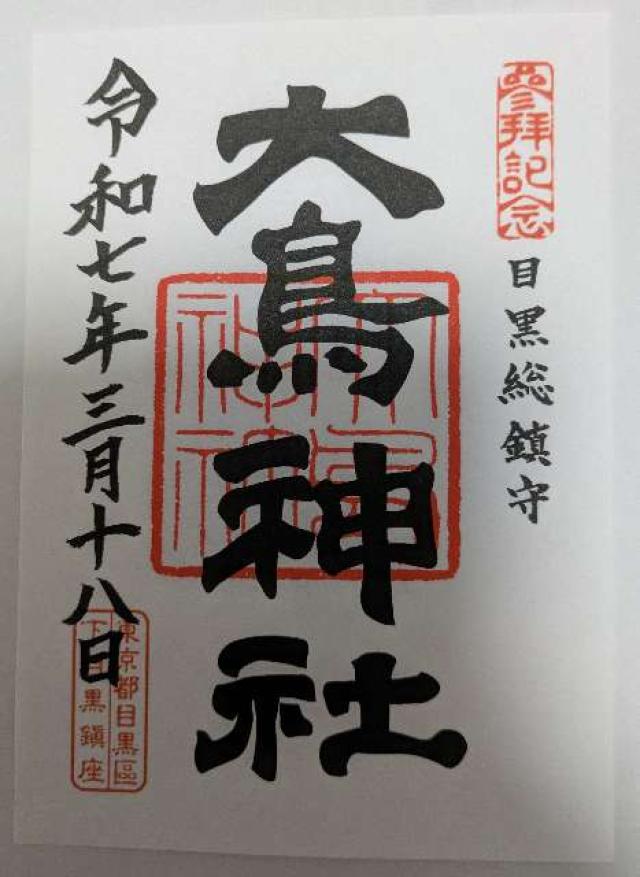 參拝記念
目黒総鎮守
大鳥神社
大鳥神社
令和七年三月十八日
東京都目黒區
下目黒鎮座